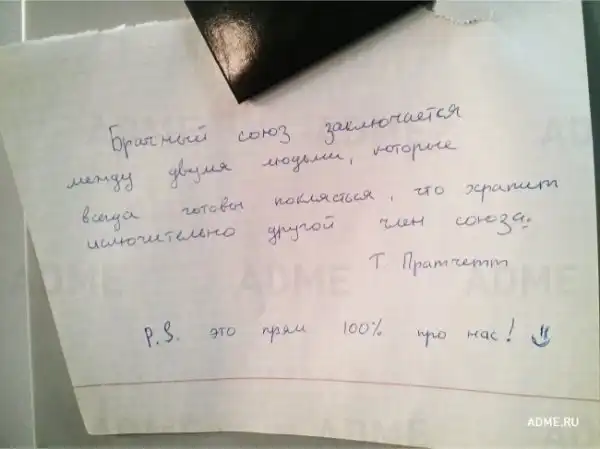 Брачный союз заключается
между двумя людьми, которые
всегда готовы поклясться, что храпит
исключительно другой член союза.
Т Пратчетт
P.S. это прям 100% про нас!
ADME.RU